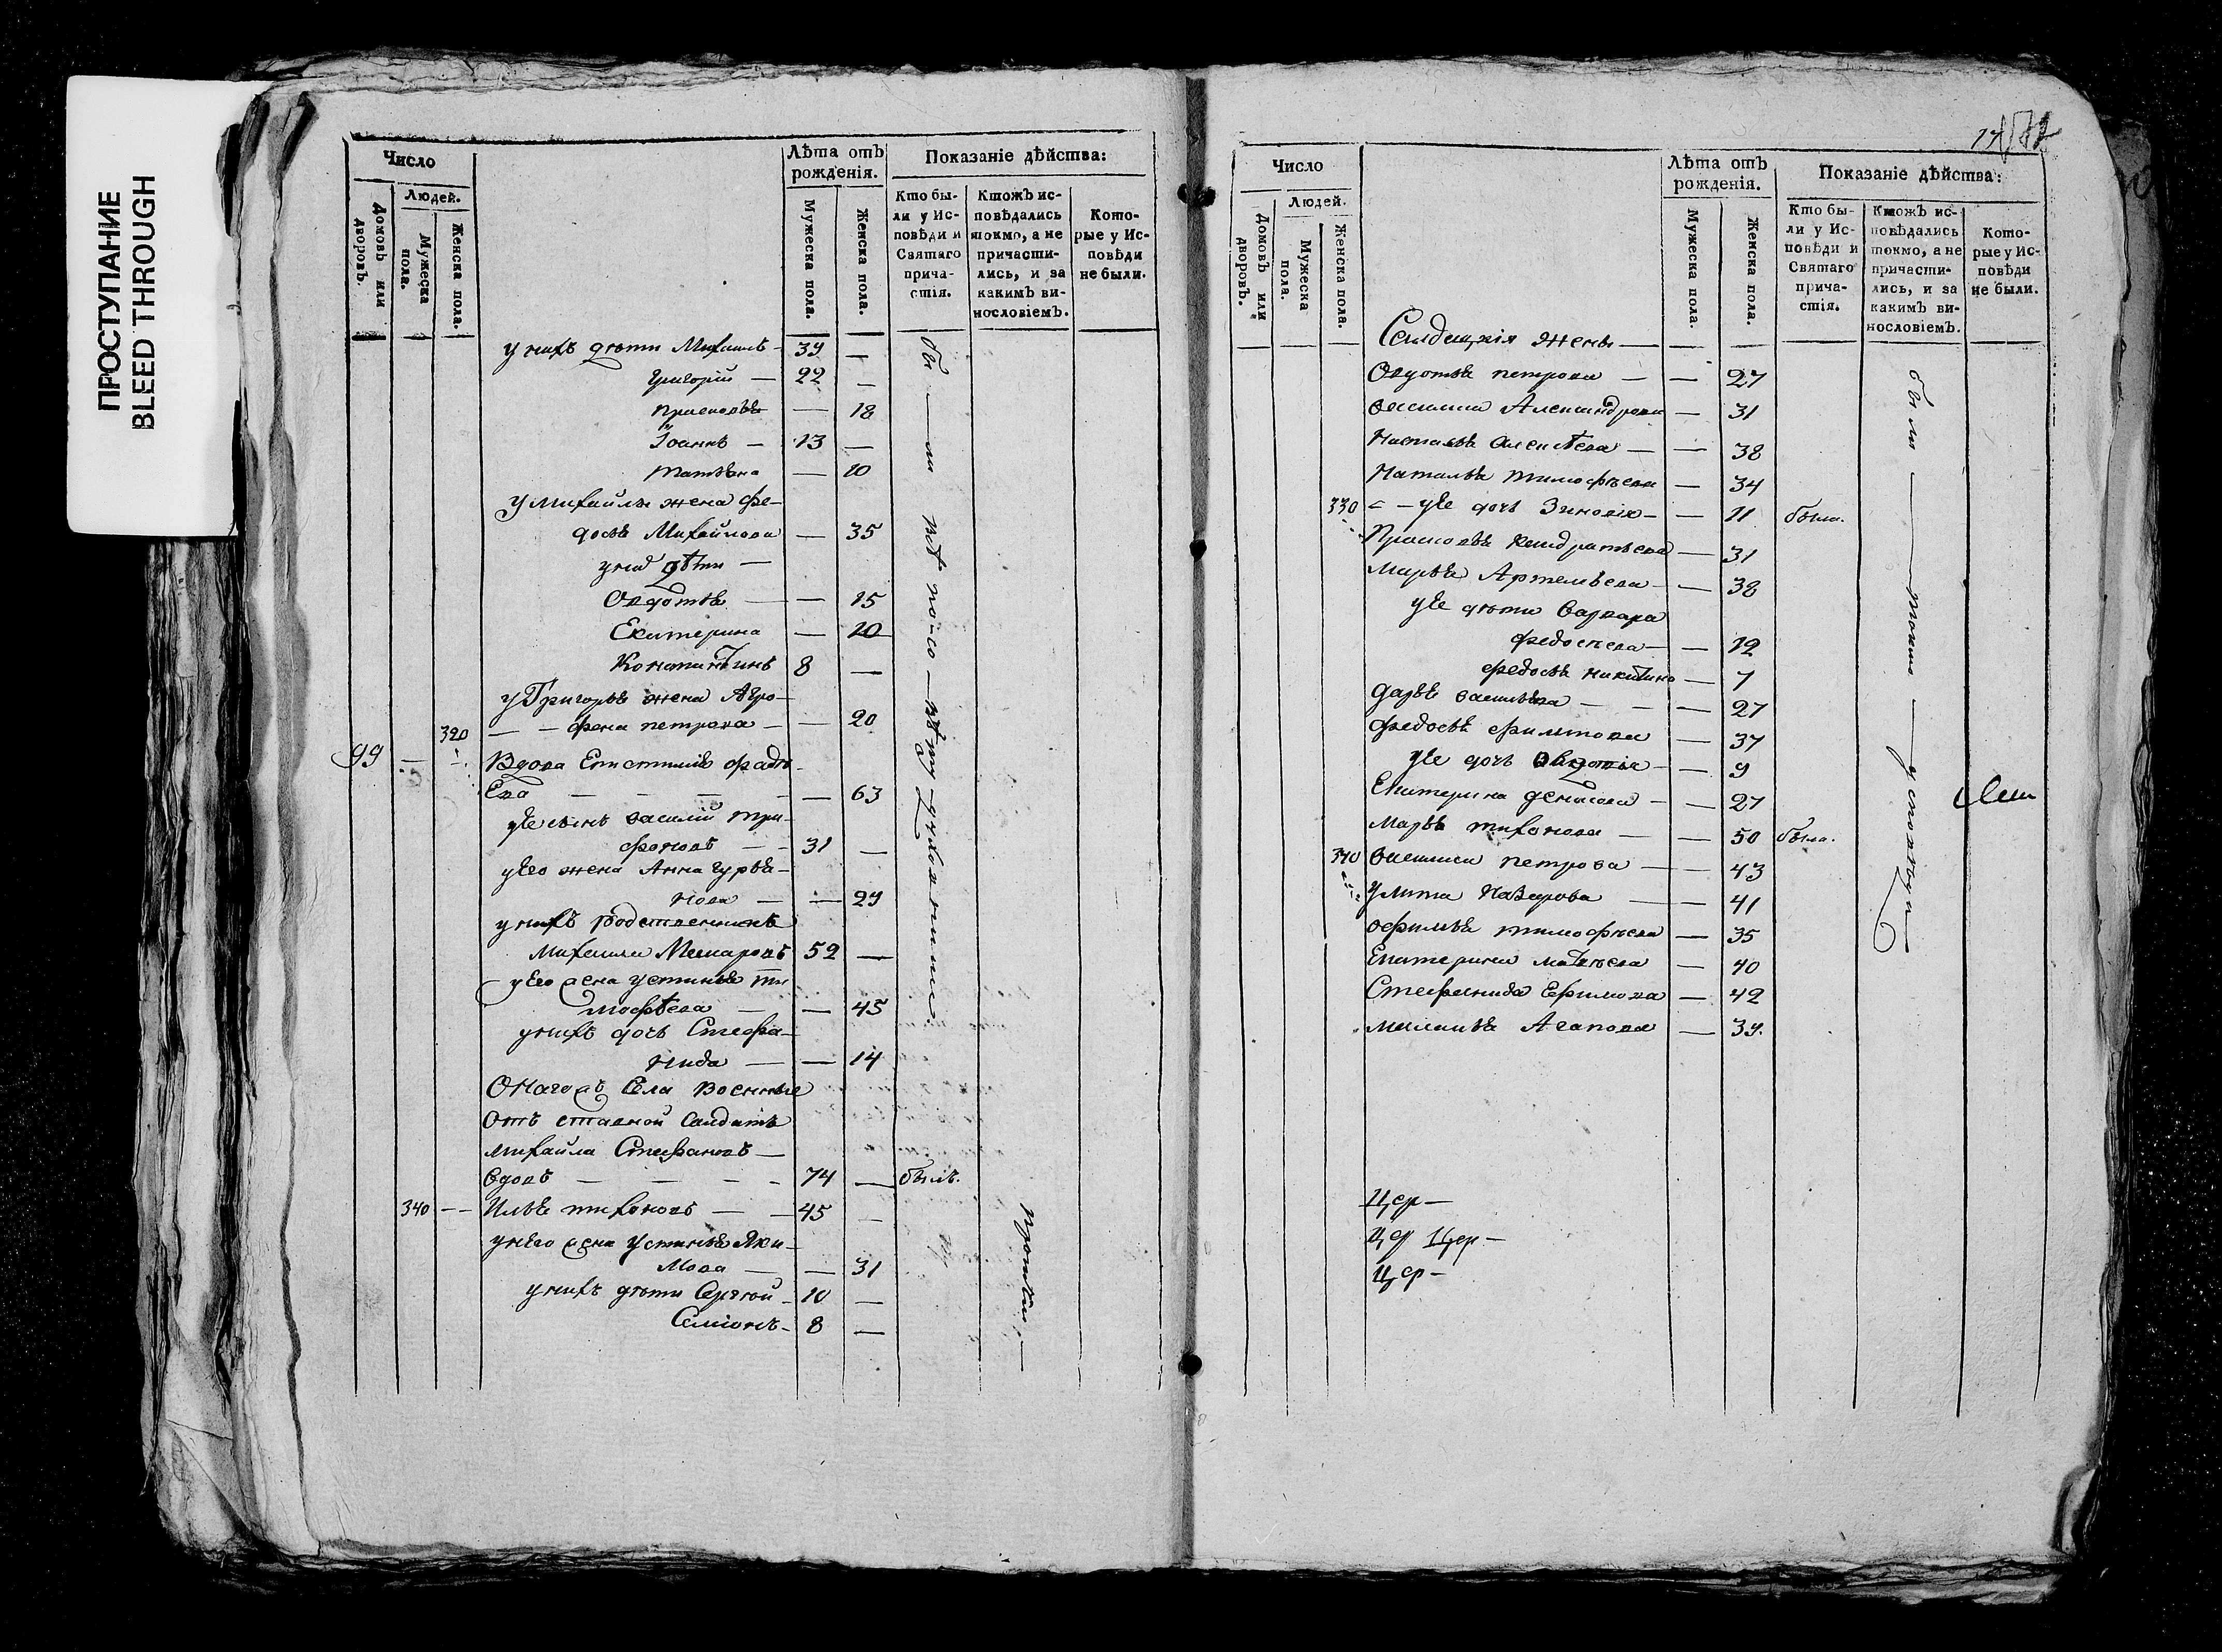 ПРОСТУПАНИЕ
BLEED THROUGH
Число
Людей.
Домовъ или дворовъ.
Мужеска пола.
Женска пола.
Лѣта отъ рожденія.
Мужеска пола.
Женска пола.
Показаніе дѣйства:
Кто бы-
ли у Ис-
повѣди и
Святаго
прича-
стія.
Ктожъ ис-
повѣдались
токмо, а не
причасти-
лись, и за
какимъ ви-
нословіемъ.
Кото-
рые у Ис-
повѣди
не были.
у нихъ дѣти Михаилъ — 39 —
Григорій — 22 —
Прасковья — 18
Іоаннъ — 13 —
Татьяна — 10
У Михайлы жена Фе-
досья Михайлова — 35
у них дѣти —
Овдотья — — 15
Екатерина — 10
Константинъ 8 —
у Григорья жена Агро-
320 — — фена петрова — — 20
99 — — Вдова Епистимія
Ева — — — — — 63
у Ее сынъ василій три-
фоновъ — — 31 —
у Его жена Анна гурья-
нова — — 29
у нихъ Родственникъ
Михаила 52 —
у Его жена устинья ти
мофѣева — — 45
у нихъ дочь Стефа-
нида — — 14
Онагожъ Села Военные
Отъ ставной Салдатъ
михайла Стефановъ —
Вдовъ — — — — 74 — былъ.
340 — — Илья тихоновъ — — 45 —
у него жена Устинья Яки-
мова — — 31
у нихъ дѣти Сергѣй — 10 —
Семіонъ — 8 —
Число
Людей.
Домовъ или дворовъ.
Мужеска пола.
Женска пола.
Лѣта отъ рожденія.
Мужеска пола.
Женска пола.
Показаніе дѣйства:
Кто бы-
ли у Ис-
повѣди и
Святаго
прича-
стія.
Ктожъ ис-
повѣдались
токмо, а не
причасти-
лись, и за
какимъ ви-
нословіемъ.
Кото-
рые у Ис-
повѣди
не были.
Салдацкія жены —
Овдотья петрова — — 27
василиса Александрова — 31
Настасья Алексѣева — — 38
Наталья тимофѣева — 34
330 — у Ее дочь Зиновія — — 11 была.
Прасковья кондратьева — 31
Марья Артемьева — — 38
у Ее дѣти Варвара
федосѣева — — 12
федосья никитина — 7
дарья васильева — — — 27
федосья филипова — 37
у Ее дочь — — 9
Екатерина денисова — — 27
марья тихонова — — 50 была.
340 василиса петрова — — 43
улита Назарова — — 41
офимья тимофѣева — 35
Екатерина матвѣева — 40
Стефанида Ефимова — 42
маланья Агапова — 39.
были — токмо — у исповѣди —
Цер —
Цер Цер —
Цер —